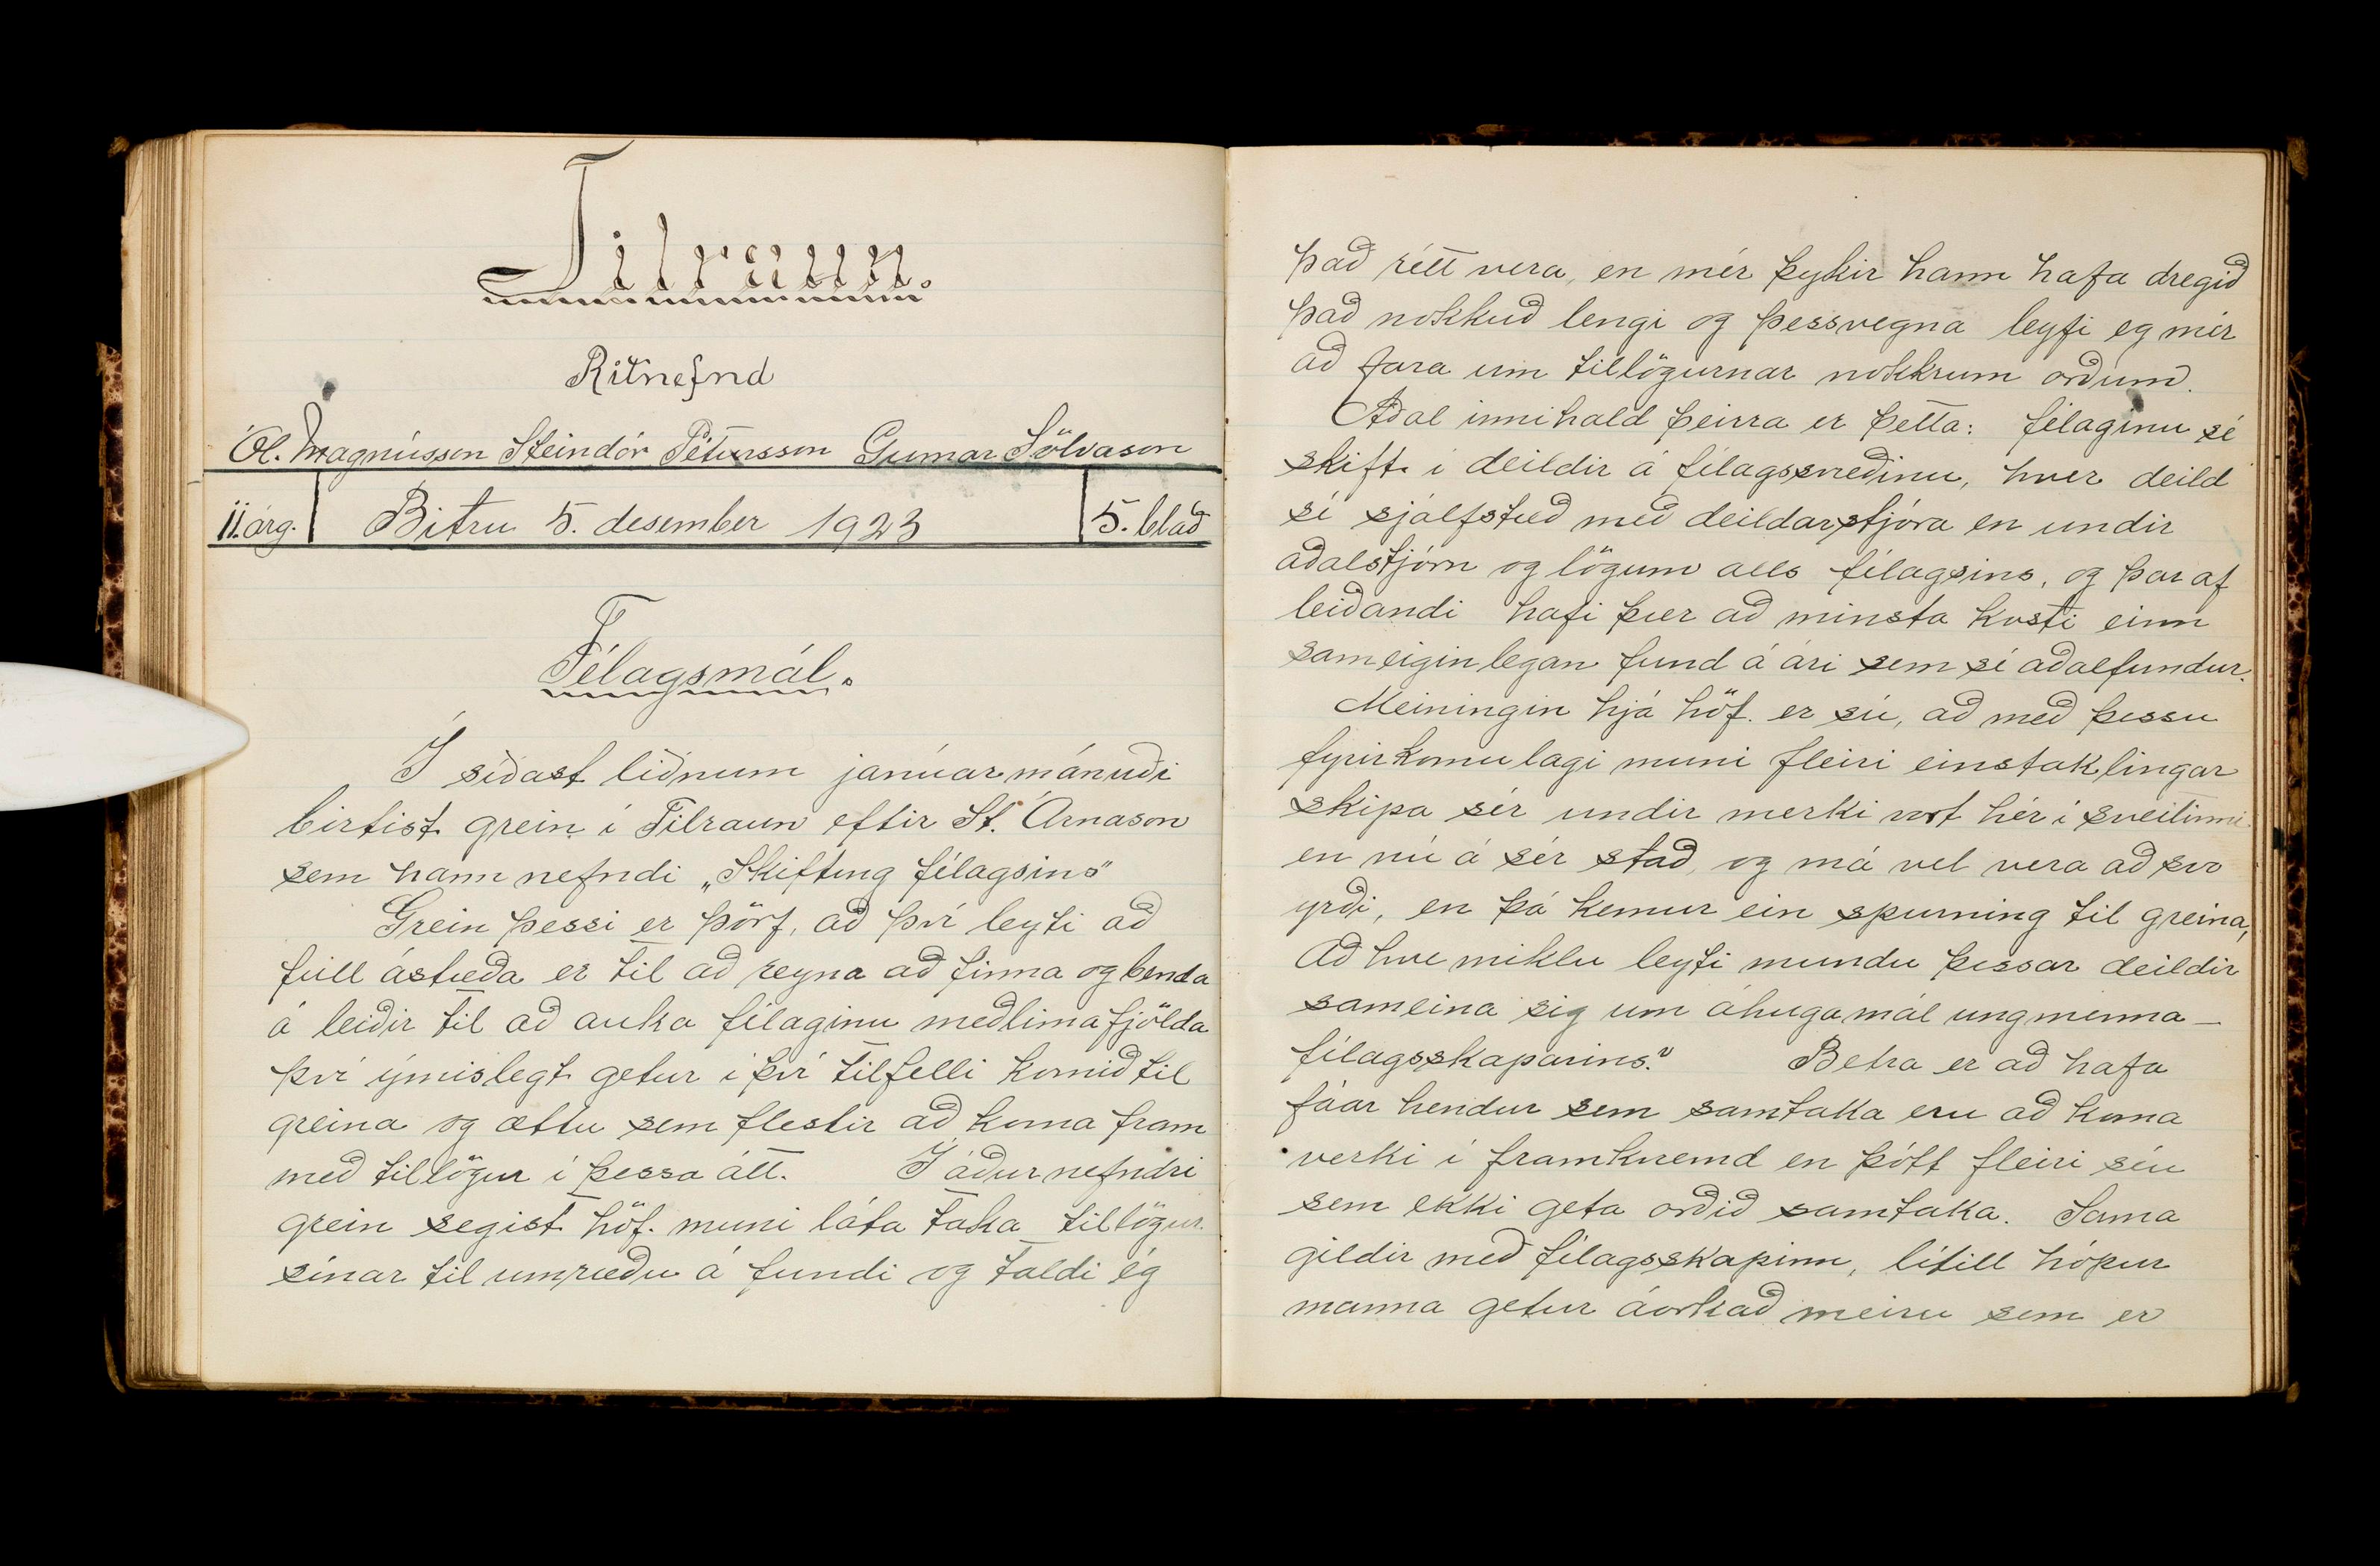 Tilraun.
Ritnefnd
Ól. Magnússon Steindór Pétursson Gunnar Sölvason
II. árg. Bitru 5. desember 1923 5. blað
Félagsmál.
Í síðast liðnum janúarmánuði
birtist grein í Tilraun eftir St. Árnason
sem hann nefndi „Skifting félagsins"
Grein þessi er þörf, að því leyti að
full ástæða er til að reyna að finna og benda
á leiðir til að auka félaginu meðlimafjölda
því ýmislegt getur í því tilfelli komið til
greina og ættu sem flestir að koma fram
með tillögur í þessa átt. Í áðurnefndri
grein segist höf. muni láta taka tillögur
sínar til umræðu á fundi og taldi ég
það rétt vera, en mér þykir hann hafa dregið
það nokkuð lengi og þessvegna leyfi eg mér
að fara um tillögurnar nokkrum orðum.
Aðal innihald þeirra er þetta: félaginu sé
skift í deildir á félagssvæðinu, hver deild
sé sjálfstæð með deildarstjóra en undir
aðalstjórn og lögum alls félagsins, og þar af
leiðandi hafi þær að minsta kosti einn
sameiginlegan fund á ári sem sé aðalfundur.
Meiningin hjá höf. er sú, að með þessu
fyrirkomulagi muni fleiri einstaklingar
skipa sér undir merki vort hér í sveitinni
en nú á sér stað, og má vel vera að svo
yrði, en þá kemur ein spurning til greina,
Að hve miklu leyti mundu þessar deildir
sameina sig um áhugamál ungmenna-
félagsskaparins? Betra er að hafa
fáar hendur sem samtaka eru að koma
verki í framkvæmd en þótt fleiri séu
sem ekki geta orðið samtaka. Sama
gildir með félagsskapinn, lítill hópur
manna getur áorkað meiru sem er